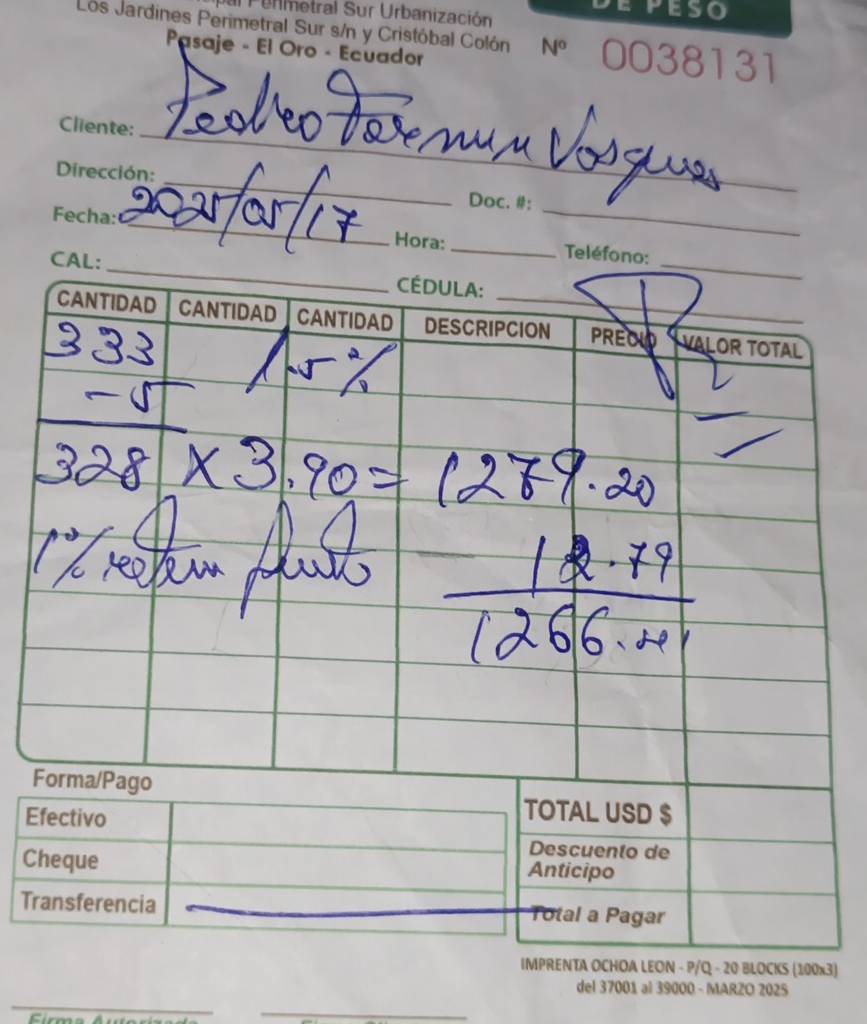 Perimetral Sur Urbanización
DE PESO
Los Jardines Perimetral Sur s/n y Cristóbal Colón
Pasaje - El Oro - Ecuador
Nº 0038131
Cliente: Pedro Vasques
Dirección:
Doc. #:
Fecha: 2025/05/17 Hora: Teléfono:
CAL: CÉDULA:
CANTIDAD CANTIDAD CANTIDAD DESCRIPCION PRECIO VALOR TOTAL
333 1.5%
-5
328 X 3.90 = 1279.20
1% reten fuente 12.79
1266.41
Forma/Pago
Efectivo
Cheque
Transferencia
TOTAL USD $
Descuento de
Anticipo
Total a Pagar
IMPRENTA OCHOA LEON - P/Q - 20 BLOCKS (100x3)
del 37001 al 39000 - MARZO 2025
Firma Autorizada